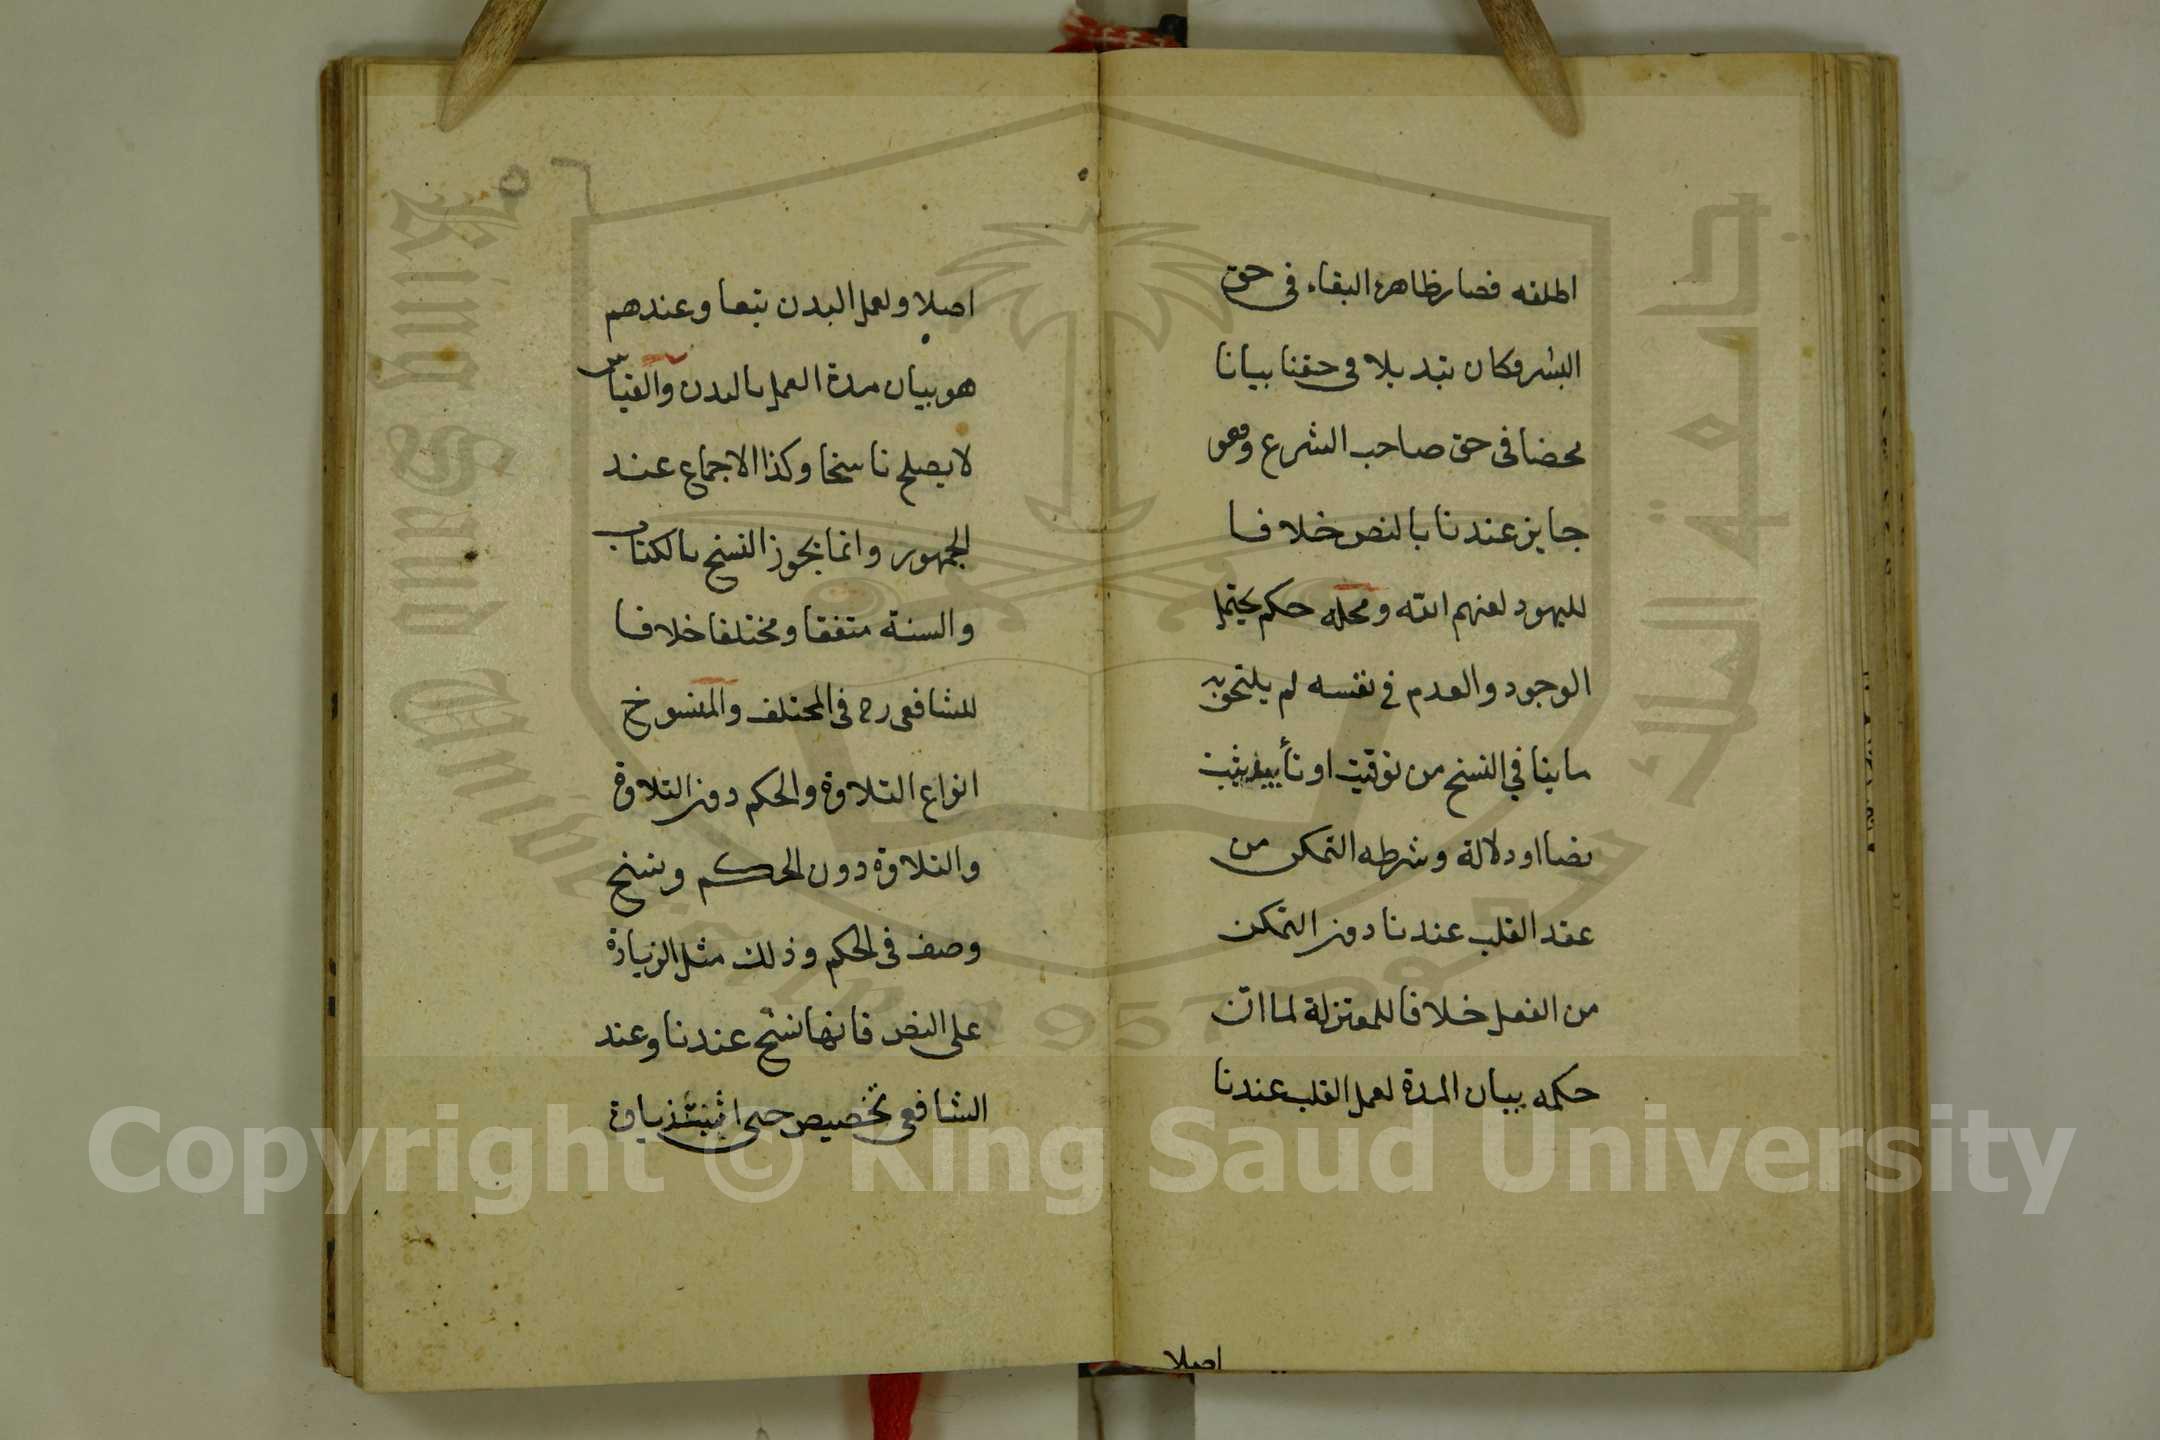 اطلقه فصار ظاهره البقاء في حق
البشر فكان تبديلا في حقنا بيانا
محضا في حق صاحب الشرع وهو
جايز عندنا بالنص خلافا
لليهود لعنهم الله ومحله حكم يحتمل
الوجود والعدم في نفسه لم يلتحق به
ما ينافي النسخ من توقيت او تأبيد يثبت
نصا او دلالة وشرطه التمكن من
عقد القلب عندنا دون التمكن
من الفعل خلافا للمعتزلة لما ان
حكمه بيان المدة لعمل القلب عندنا
اصلا
٦٥
اصلا ولعمل البدن تبعا وعندهم
هو بيان مدة العمل بالبدن والقياس
لا يصلح ناسخا وكذا الاجماع عند
الجمهور وانما يجوز النسخ بالكتاب
والسنة متفقا ومختلفا خلافا
للشافعي رح في المختلف والمنسوخ
انواع التلاوة والحكم دون التلاوة
والتلاوة دون الحكم ونسخ
وصف في الحكم وذلك مثل الزيادة
على النص فانها نسخ عندنا وعند
الشافعي تخصيص حتى اثبت زيادة
جامعة الملك سعود
King Saud University
1957
Copyright © King Saud University